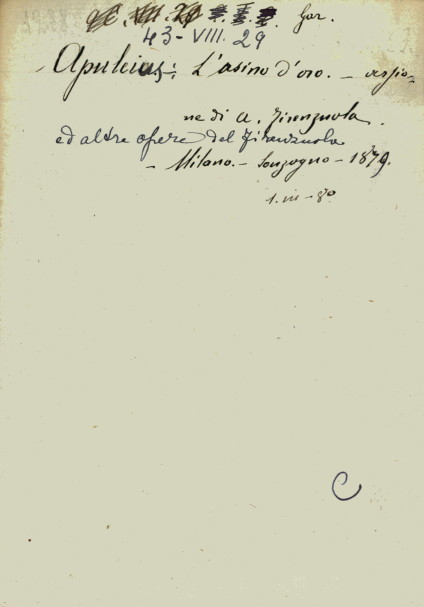 Gar.
43-VIII. 29
Apuleius: L'asino d'oro. - versio-
ne di A. Firenzuola.
ed altre opere del Firenzuola
- Milano. - Sonzogno - 1879.
1. in - 8º
C